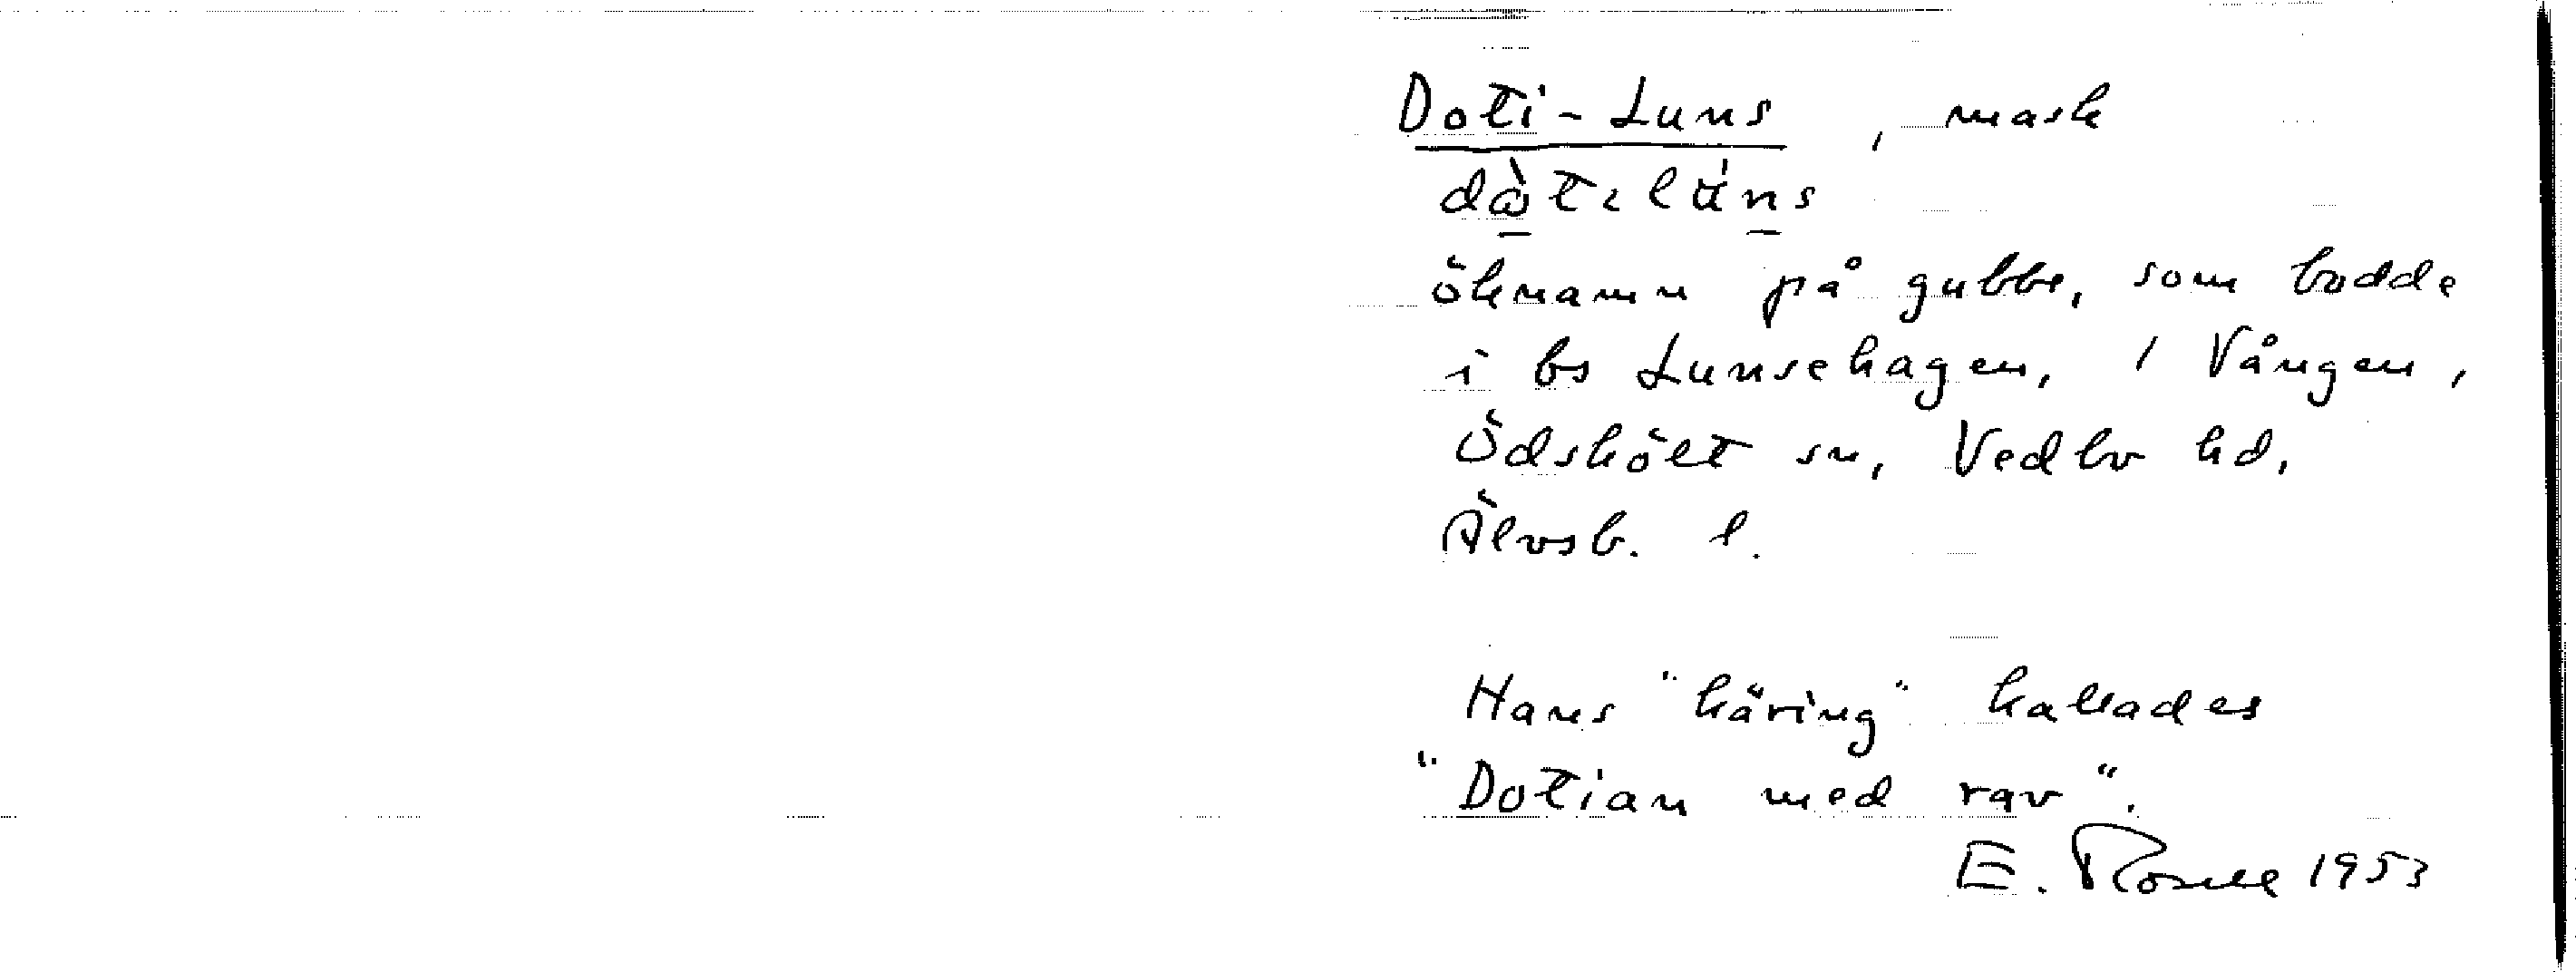 Doti-Luns, mask
dàtɩlu̇ns
öknamn på gubbe, som bodde
i bs Lunsehagen, 1 Vången,
Ödskölt sn, Vedbo hd,
Älvsb. l.
Hans "käring" kallades
"Dotian med rav".
E. Rosell 1953